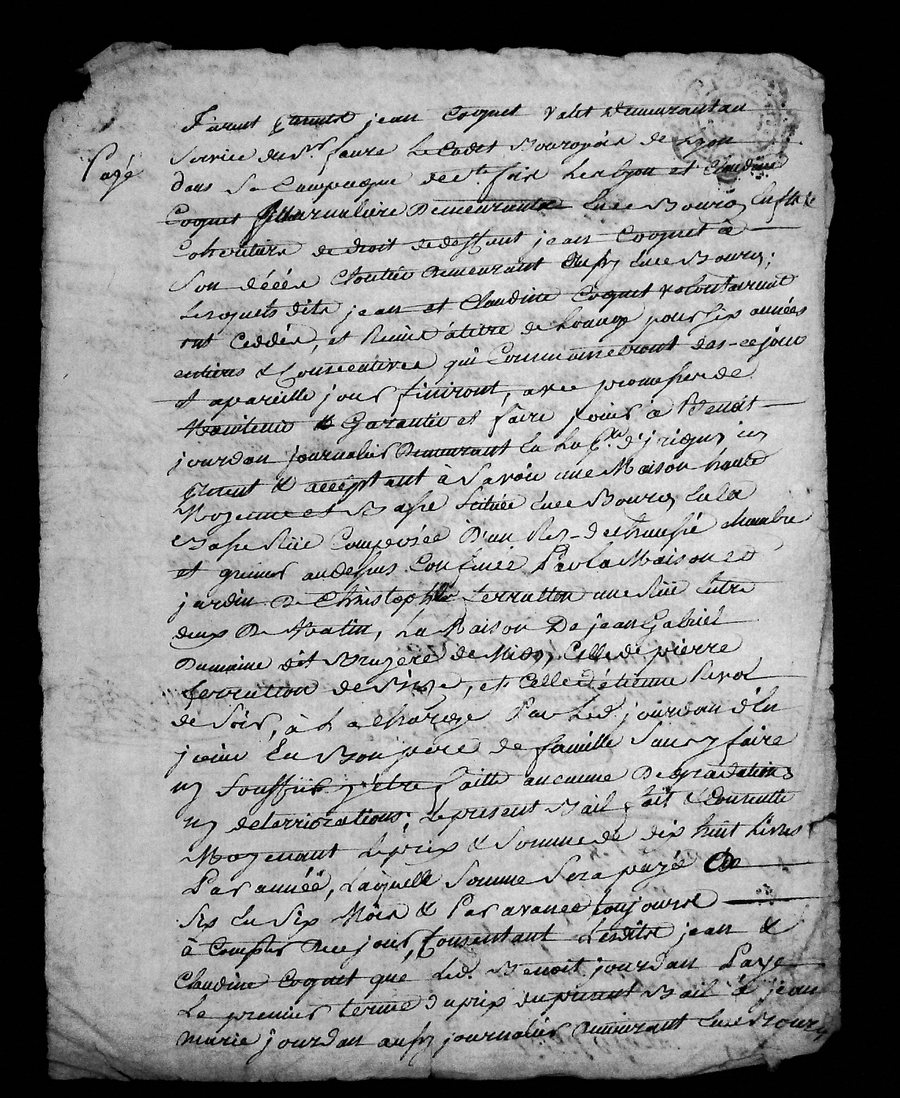 Furent présents jean Coquet valet demeurant au
Service du Sr. faure Le Cadet Bourgeois de Lyon
Payé
dans Sa Campagne de Ste foix Les lyon et Claudine
Coquet journalière Demeurante En ce Bourg, En qté de
Cohéritiers de droit de deffunt jean Coquet à
Son décéde Cloutier demeurant aussy En ce Bourg;
Lesquels dits jean et Claudine Coquet volontairemt
ont Ceddés, et Remis à titre de Louage pour Six années
entières & Consécutives qui Commenceront dès-ce jour
et à pareille jour finiront, avec promesse de
Maintenir & Garantir et faire jouir à Benoit
jourdan journalier Demeurant En La psse. d'jrigny icy
présent & acceptant à Savoir une Maison haute
Moyenne et Basse Située En ce Bourg En la
Basse Rüe Composée D'un Rez-de chaussé chambre
et grenier audessus Confinée Par La Maison et
jardin De Christophle terrasson une Rüe Entre
deux De Matin, La Maison De jean Gabriel
Dumaine dit Bruyere de Midy, Celle de pierre
ferration de Bize, et Celle d'étienne Perol
de Soir, à La Charge Par Led. jourdan d'En
jouir En Bon père de famille Sans y faire
ny Souffrir y être faitte aucunne Dégradations
ny déterriorations; Le présent Bail fait & Consentie
Moyenant Le prix & Somme de dix huit Livres
Par année, Laquelle Somme Sera payée De
Six En Six Mois & Par avance toujours
à Compter De ce jour, Consentant Lesdits jean &
Claudine Coquet que Led. Benoit jourdan Paye
Le premier terme du prix du présent Bail à jean
marie jourdan aussy journalier Demeurant En ce Bourg